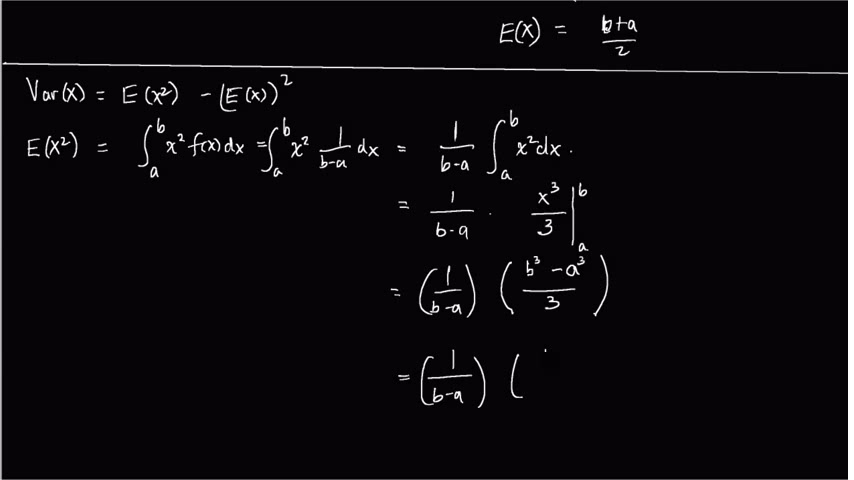 E(X) = b+a/2
Var(x) = E(x²) - (E(x))²
E(X²) = ∫_a^b x² f(x) dx = ∫_a^b x² 1/(b-a) dx = 1/(b-a) ∫_a^b x² dx.
= 1/(b-a) · x³/3 |_a^b
= (1/(b-a)) ((b³ - a³)/3)
= (1/(b-a)) (